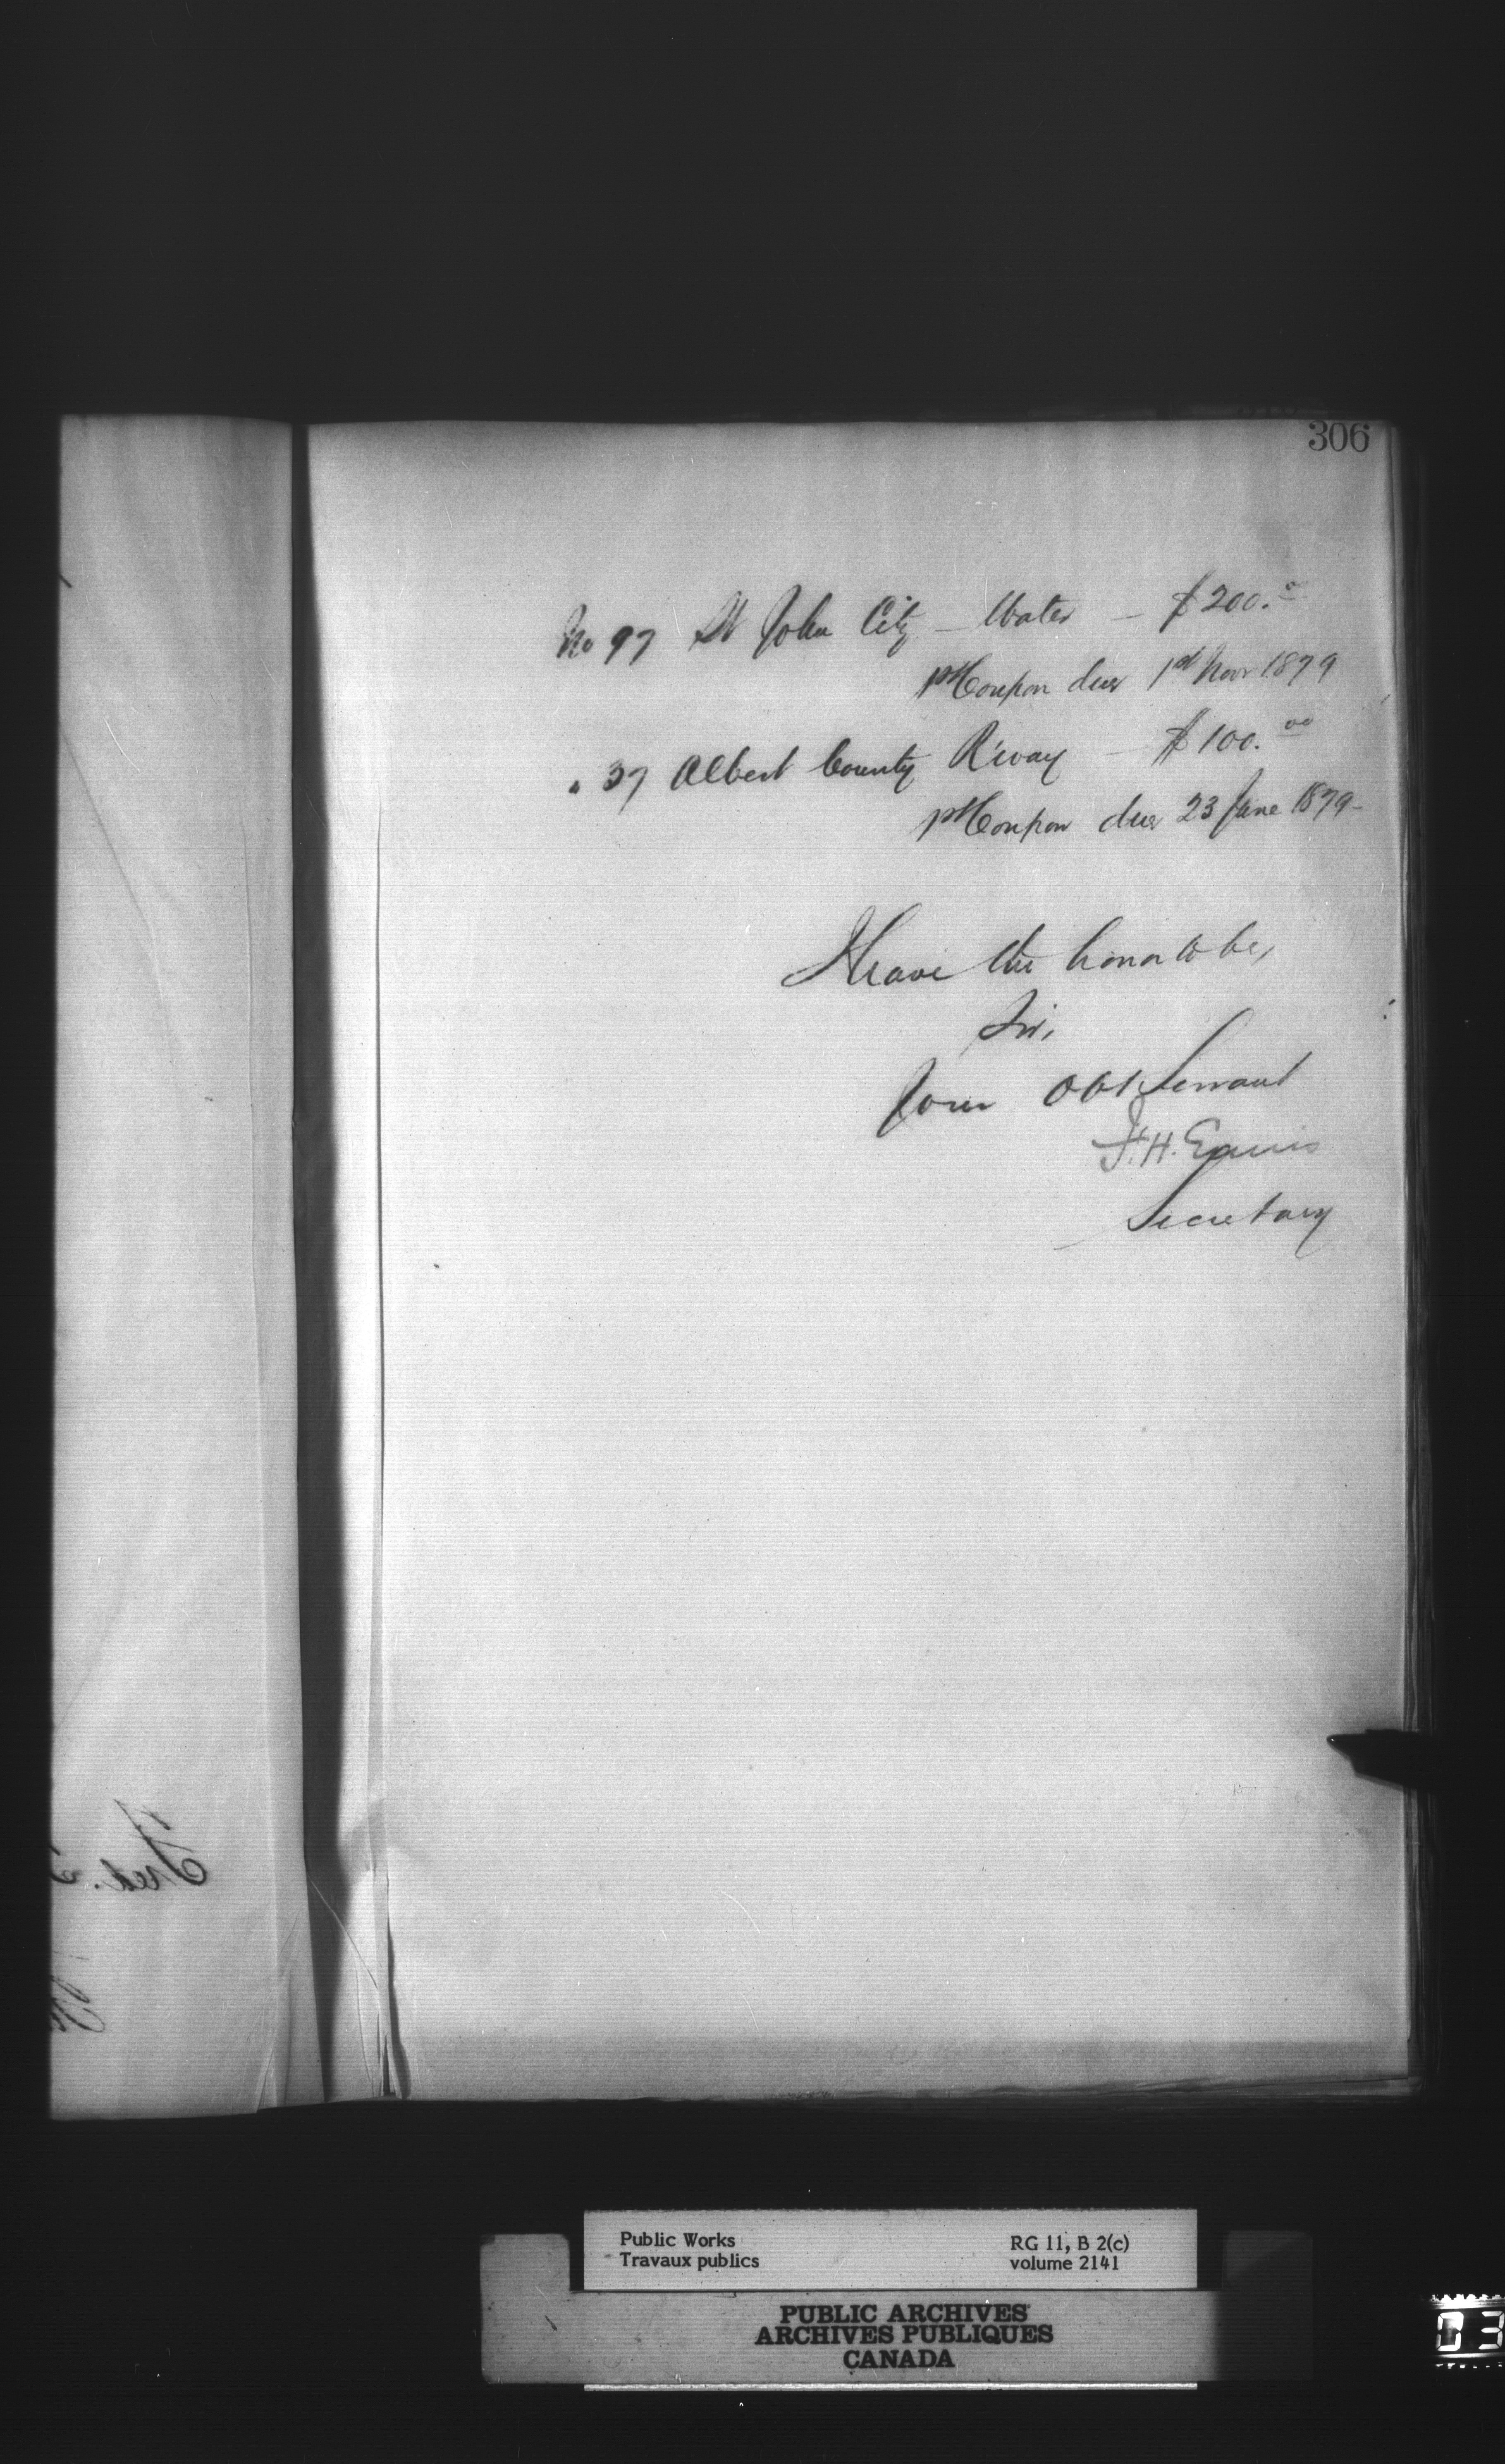 306
No 97 St John City – Water – $200.00
1st Coupon due 1st Novr 1879
" 37 Albert County R'way – $100.00
1st Coupon due 23 June 1879 –
I have the honor to be,
Sir,
Your Obt Servant
F. H. Ennis
Secretary
Fred.
Public Works
Travaux publics
RG 11, B 2(c)
volume 2141
PUBLIC ARCHIVES
ARCHIVES PUBLIQUES
CANADA
03